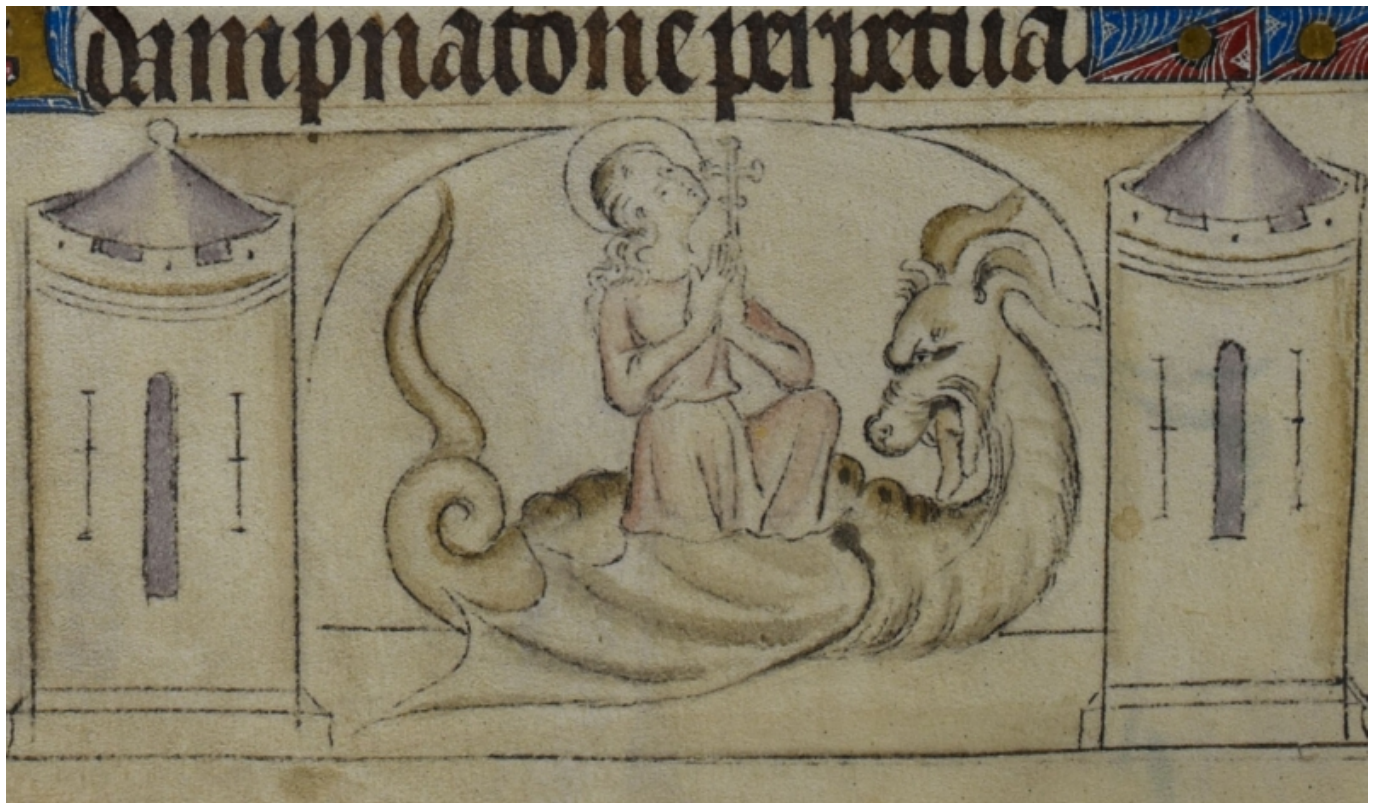 dampnatione perpetua.